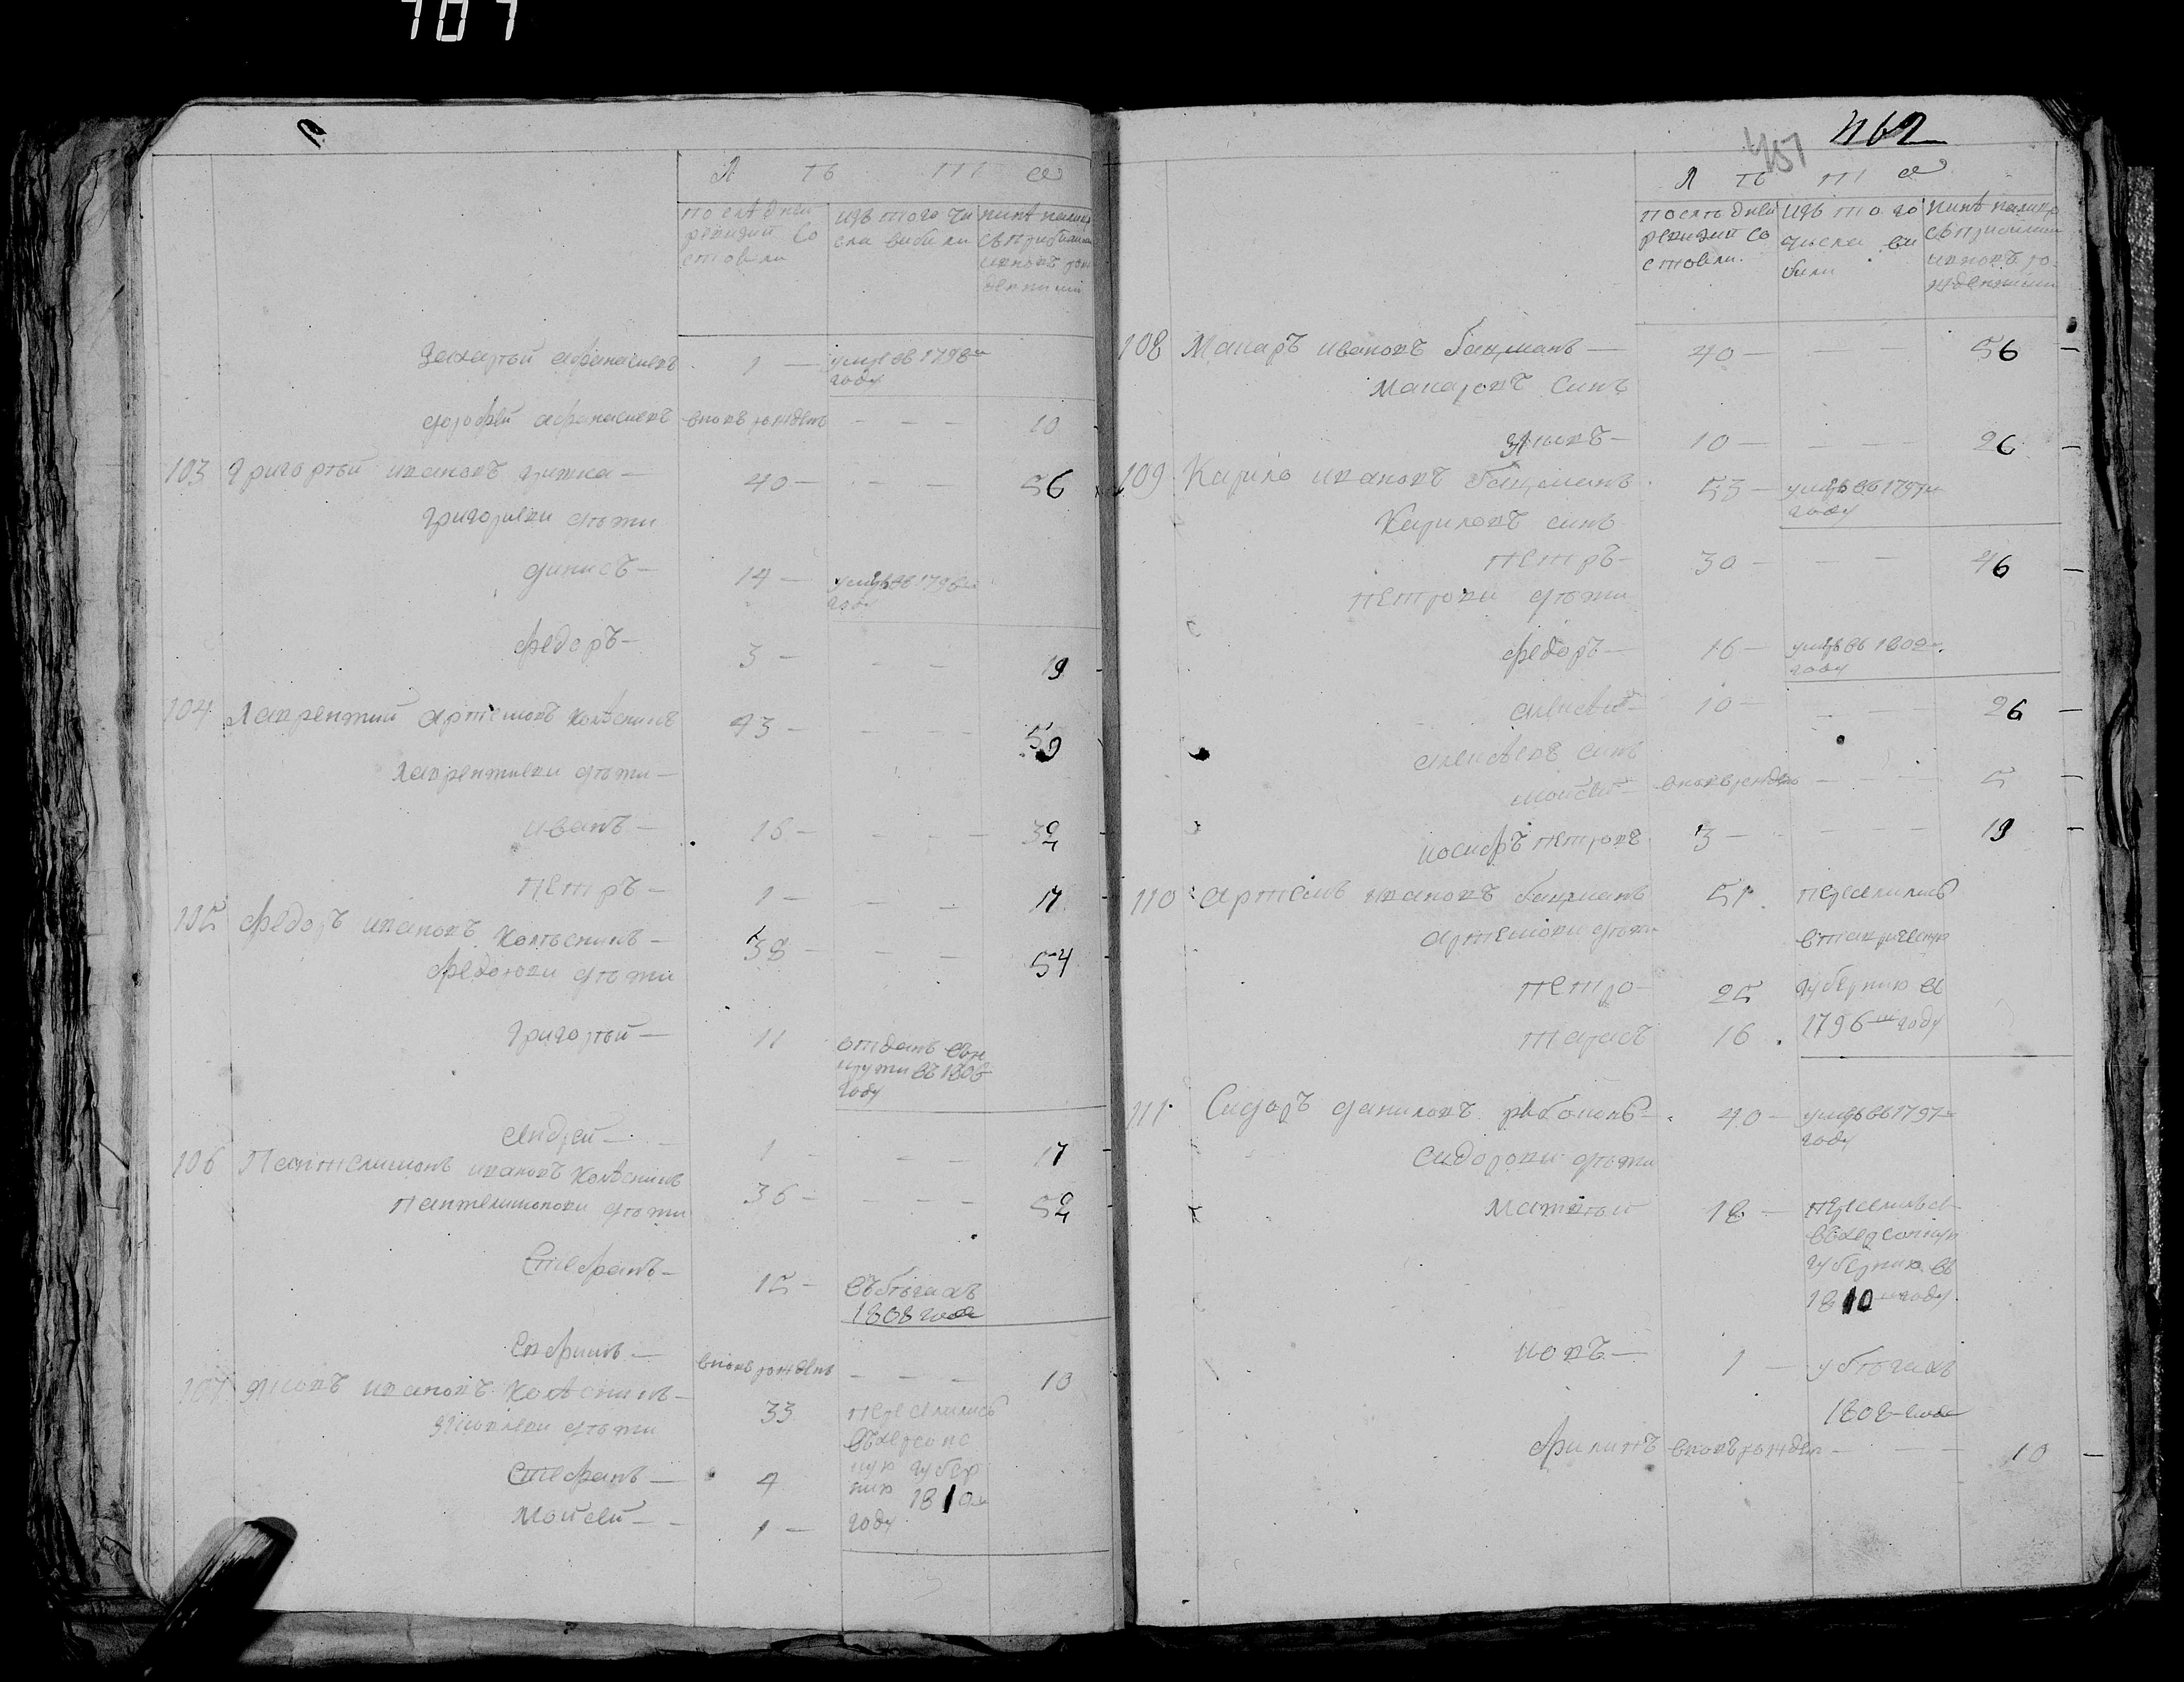 707
Л ѣ т а
последней ревизии состояли
изъ того числа выбыли
нинѣ налицо съ прибылыми и вновь рожденными
Захарѣй Афанасиевъ 1 — умре въ 1798м году
дорофей Афанасиевъ вновь рожденъ — — — 10
103 Григорѣй ивановъ — 40 — — — — 56
григориеви дѣти
динисъ — 14 — умре въ 1796м году
федоръ — 3 — — — 19
104 Лаврентий Артемовъ Колѣсникъ 43 — — — — 59
Лаврентиеви дѣти —
иванъ — 16 — — — — 32
петръ — 1 — — — — 17
105 федоръ ивановъ Колѣсникъ — 38 — — — 54
федорови дѣти
григорѣй — 11 отданъ въ рекрути въ 1808 году
Андрей — 1 — — — 17
106 Пантелимонъ ивановъ Колѣсникъ 36 — — — — 52
пантелимонови дѣти
Стефанъ — 15 — въ бѣгахъ 1808 года
Ефимъ — вновь рожденъ — — — 10
107 Яковъ ивановъ Колѣсникъ — 33 переселились въ херсонскую губернию 1810м году
Яковлеви дѣти
Стефанъ — 4
Мойсей — 1 —
457 462
Л ѣ т а
последней ревизии состояли.
изъ того числа выбыли
нинѣ налицо съ прибылими и вновь рожденними
108 Макаръ ивановъ бацманъ — 40 — — — 56 —
Макаровъ синъ
Яковъ — 10 — — — — 26 —
109 Кирило ивановъ бацманъ 53 — умре въ 1797м году
Кириловъ синъ
петръ — 30 — — — 46 —
петрови дѣти
федоръ — 16 — умре въ 1802м году
Алексѣй — 10 — — — — 26 —
Алексѣевъ синъ
мойсей — вновь рожденъ — — — 5 —
иосифъ петровъ 3 — — — — 19 —
110 Артемъ ивановъ бацманъ 51 переселились
Артемови дѣти в таврическую
петро — 25 губернию въ
тарасъ 16 1796м году
111 Сидоръ даниловъ — 40 — умре въ 1797м году
Сидорови дѣти
Матвѣй 18 — переселился
въ херсонскую
губернию въ
1810м году.
иовъ — 1 — у бѣгахъ
1808 года
филипъ вновь рожденъ — — — 10 —